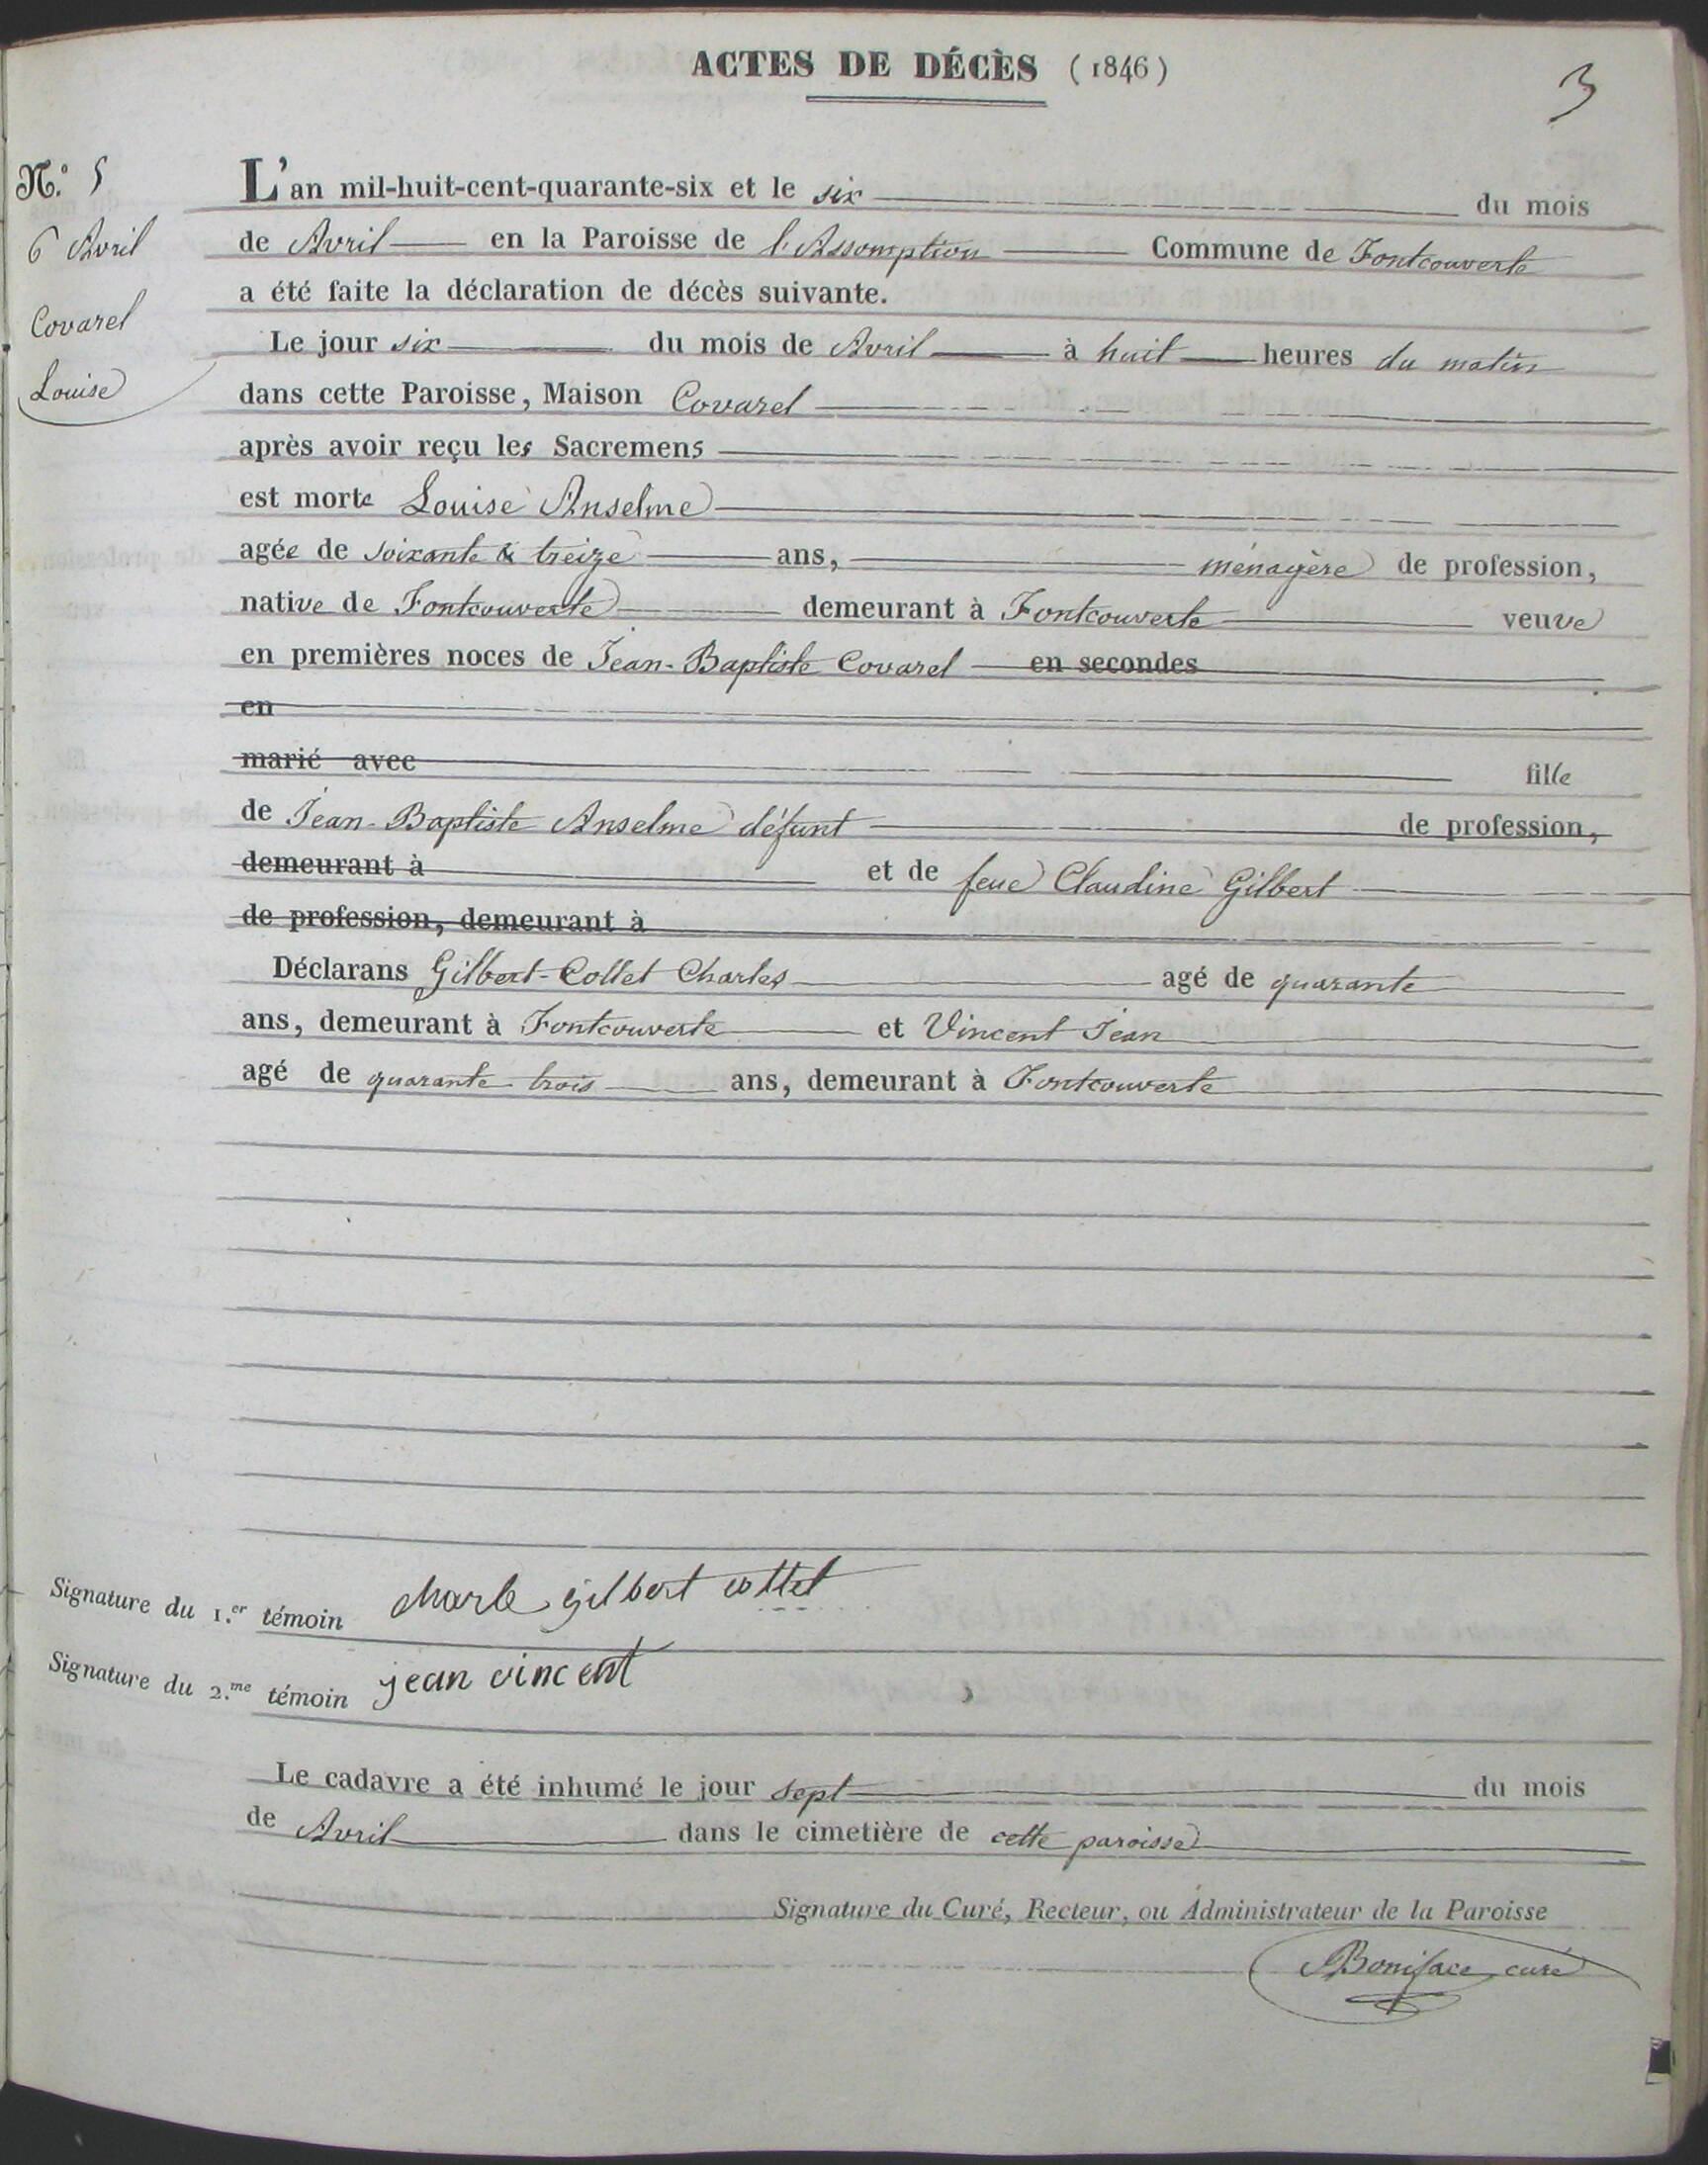 ACTES DE DÉCÈS (1846)
3
N.° 5
6 Avril
Covarel
Louise
L'an mil-huit-cent-quarante-six et le six du mois
de Avril en la Paroisse de l'Assomption Commune de Fontcouverte
a été faite la déclaration de décès suivante.
Le jour six du mois de Avril à huit heures du matin
dans cette Paroisse, Maison Covarel
après avoir reçu les Sacremens
est morte Louise Anselme
agée de soixante & treize ans, ménagère de profession,
native de Fontcouverte demeurant à Fontcouverte veuve
en premières noces de Jean-Baptiste Covarel en secondes
en
marié avec fille
de Jean-Baptiste Anselme défunt de profession,
demeurant à et de feue Claudine Gilbert
de profession, demeurant à
Déclarans Gilbert-Collet Charles agé de quarante
ans, demeurant à Fontcouverte et Vincent Jean
agé de quarante trois ans, demeurant à Fontcouverte
Signature du 1.er témoin charle gilbert collet
Signature du 2.me témoin jean vincent
Le cadavre a été inhumé le jour sept du mois
de Avril dans le cimetière de cette paroisse
Signature du Curé, Recteur, ou Administrateur de la Paroisse
Boniface curé